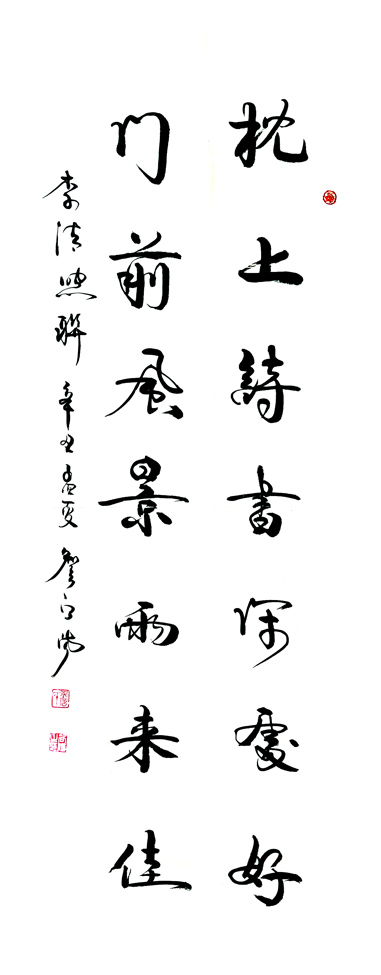 枕上詩書閑處好
门前風景雨来佳
李清照聯 辛丑孟夏